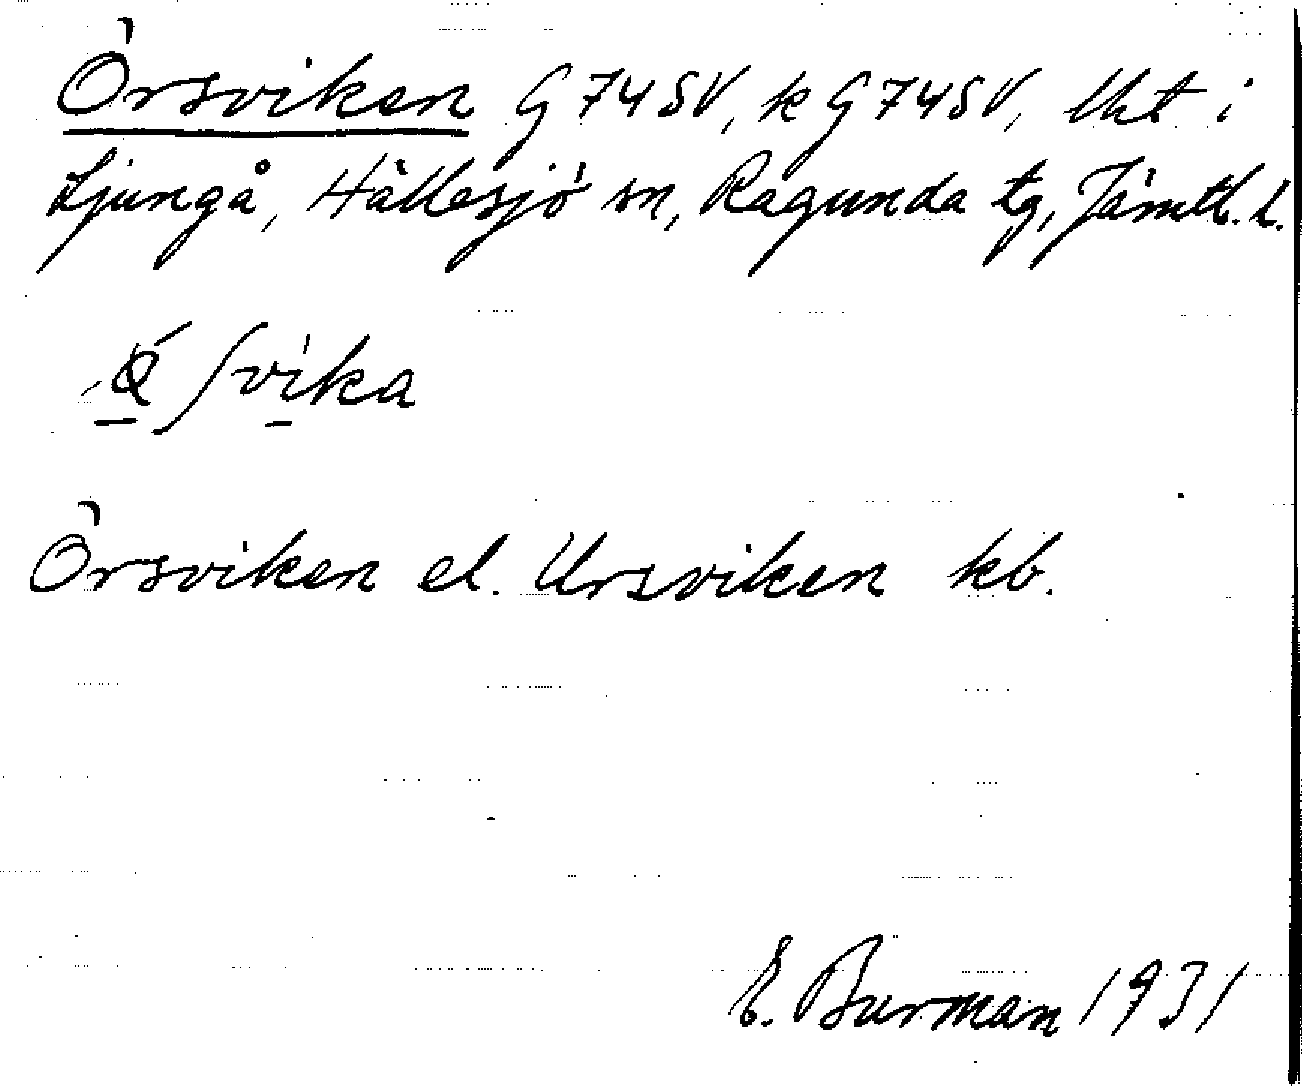 Örsviken G 74 SV, k G 74 SV, lht i
Ljungå, Hällesjö sn, Ragunda tg, Jämtl. l.
svika
Örsviken el. Ursviken kb.
E. Burman 1931